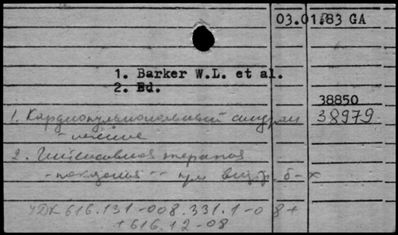 03.01.83 GA
1. Barker W.L. et al.
2. Ed.
38850
1. Кардиопульмональный синдром 38979
- лечение
2. Интенсивная терапия
- показания -- при
УДК 616.131-008.331.1-08+
+616.12-08